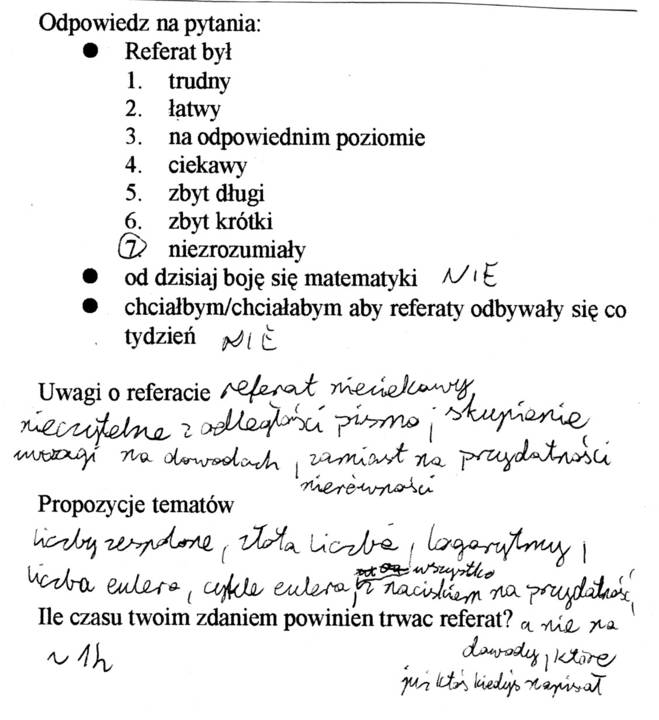 Odpowiedz na pytania:
● Referat był
1. trudny
2. łatwy
3. na odpowiednim poziomie
4. ciekawy
5. zbyt długi
6. zbyt krótki
7 niezrozumiały
● od dzisiaj boję się matematyki NIE
● chciałbym/chciałabym aby referaty odbywały się co
tydzień NIE
Uwagi o referacie referat nieciekawy,
nieczytelne z odległości pismo, skupianie
uwagi na dowodach, zamiast na przydatności
nierówności
Propozycje tematów
liczby zespolone, złota liczba, logarytmy,
liczba eulera, cykle eulera, wszystko
z naciskiem na przydatność,
Ile czasu twoim zdaniem powinien trwac referat? a nie na
~ 1h dowody, które
już ktoś kiedyś napisał